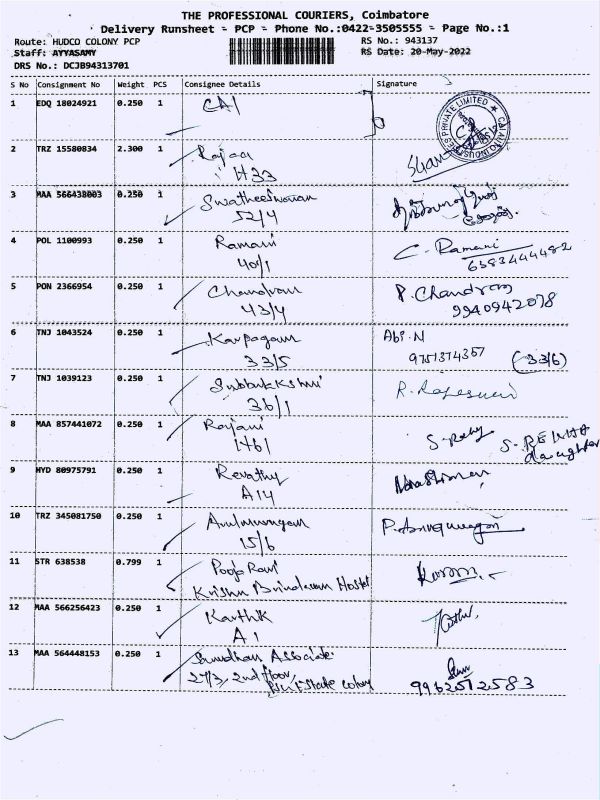 THE PROFESSIONAL COURIERS, Coimbatore
Delivery Runsheet - PCP - Phone No.:0422-3505555 - Page No.:1
Route: HUDCO COLONY PCP
RS No.: 943137
Staff: AYYASAMY
RS Date: 20-May-2022
DRS No.: DCJB94313701
S No Consignment No Weight PCS Consignee Details Signature
1 EDQ 18024921 0.250 1 CAI
2 TRZ 15580834 2.300 1 Rajaa
H33
3 MAA 566438003 0.250 1 Swatheeswaran
52/4
4 POL 1100993 0.250 1 Ramani C. Ramani
40/1 6383444482
5 PON 2366954 0.250 1 Chandran P. Chandran
43/4 9940942078
6 TNJ 1043524 0.250 1 Karpagam Abi.N
33/5 9751374357 (33/6)
7 TNJ 1039123 0.250 1 Subbulakshmi
36/1
8 MAA 857441072 0.250 1 Rajani S. RENHA
146/1 daughter
9 HYD 80975791 0.250 1 Revathy
A14
10 TRZ 345081750 0.250 1 Arulmurugan
15/6
11 STR 638538 0.799 1 Pooja Ravi
Krishna Brindavan Hostel
12 MAA 566256423 0.250 1 Karthik
A1
13 MAA 564448153 0.250 1 Associate
27/3, 2nd floor, 9962512583
Estate colony